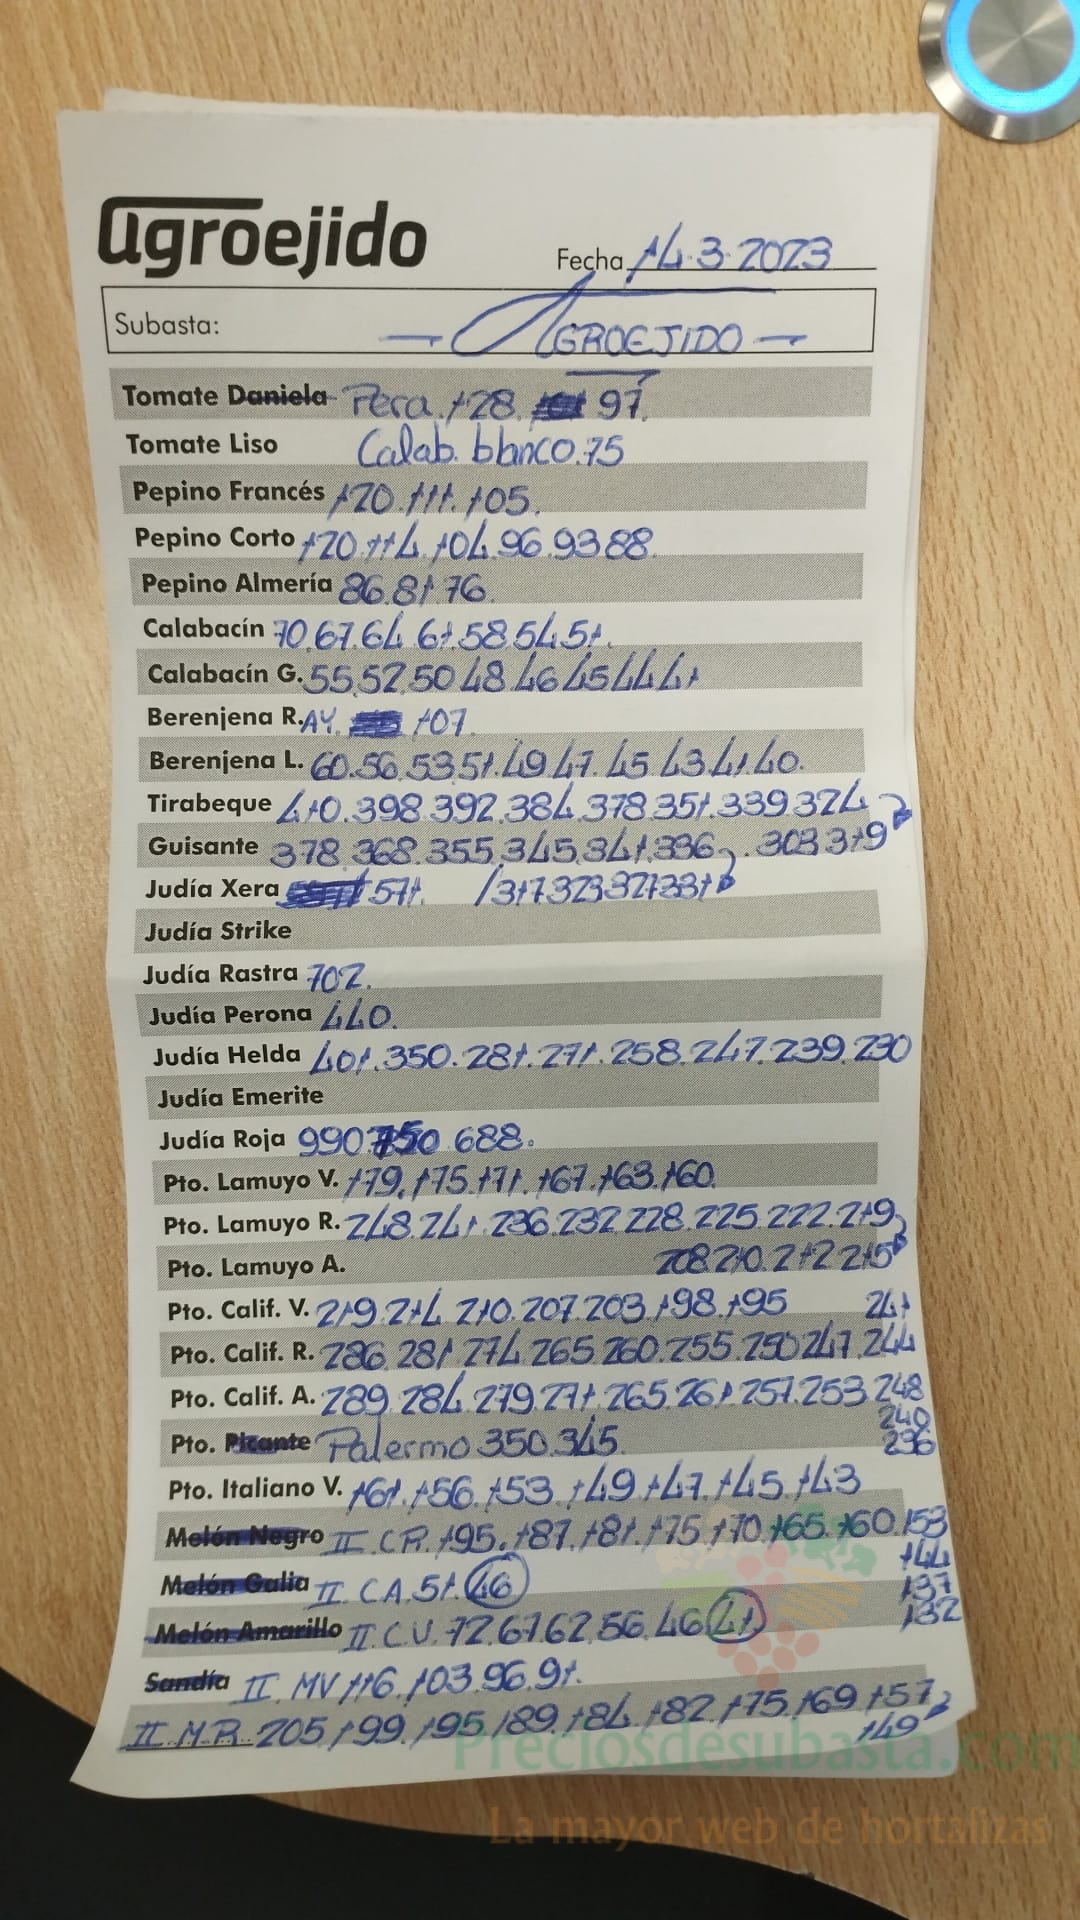 agroejido
Fecha 14.3.2023
Subasta: — AGROEJIDO —
Tomate Daniela Pera 128. 97.
Tomate Liso Calab. blanco. 75
Pepino Francés 120.111.105.
Pepino Corto 120.114.104.96.93 88
Pepino Almería 86.81.76.
Calabacín 70.67.64.61.58.54.51.
Calabacín G. 55.52.50.48.46.45.44.41
Berenjena R. AY. 107.
Berenjena L. 60.56.53.51.49.47.45.43.41.40.
Tirabeque 410.398.392.384.378.351.339.324
Guisante 378.368.355.345.341.336. 303 319
Judía Xera 571. /317 323 327 331
Judía Strike
Judía Rastra 702.
Judía Perona 440.
Judía Helda 401.350.281.271.258.247.239.230
Judía Emerite
Judía Roja 990 750 688.
Pto. Lamuyo V. 179.175.171.167.163.160.
Pto. Lamuyo R. 248.241.236.232.228.225.222.219
Pto. Lamuyo A. 208 210.212 215
Pto. Calif. V. 219.214.210.207.203.198.195 241
Pto. Calif. R. 286.281.274.265.260.255.250 247.244
Pto. Calif. A. 289.284.279.271.265.261.257.253.248
240
Pto. Picante Palermo 350.345. 236
Pto. Italiano V. 161.156.153.149.147.145.143
Melón Negro II C.R. 195.187.181.175.170.165.160.153
144
Melón Galia II C.A. 51.46 137
Melón Amarillo II C.V. 72.67.62.56.46 41 132
Sandía II MV 116.103.96.91.
II M.R. 205.199.195.189.184.182.175.169.157
149
Preciosdesubasta.com
La mayor web de hortalizas